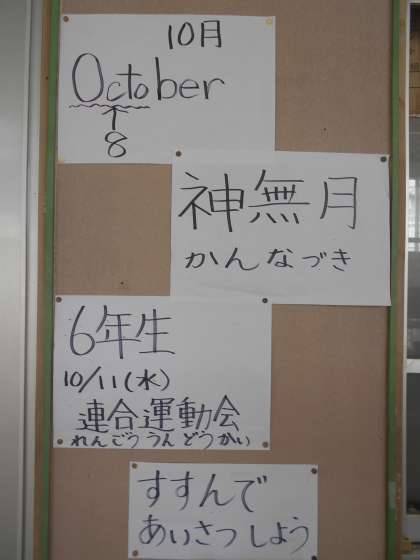 10月
October
↑
8
神無月
かんなづき
6年生
10/11(水)
連合運動会
れんごううんどうかい
すすんで
あいさつしよう